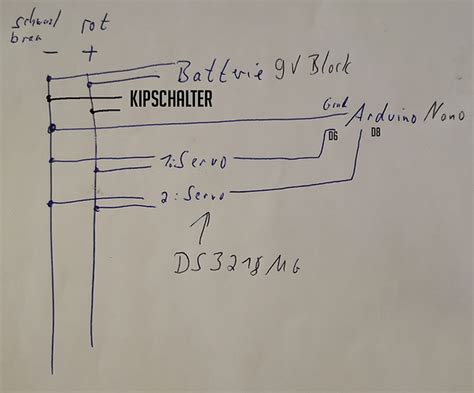 schwarz/ rot
braun
− +
Batterie 9V Block
KIPSCHALTER
Grnd
Arduino Nono
D6 D8
1. Servo
2. Servo
DS3218MG